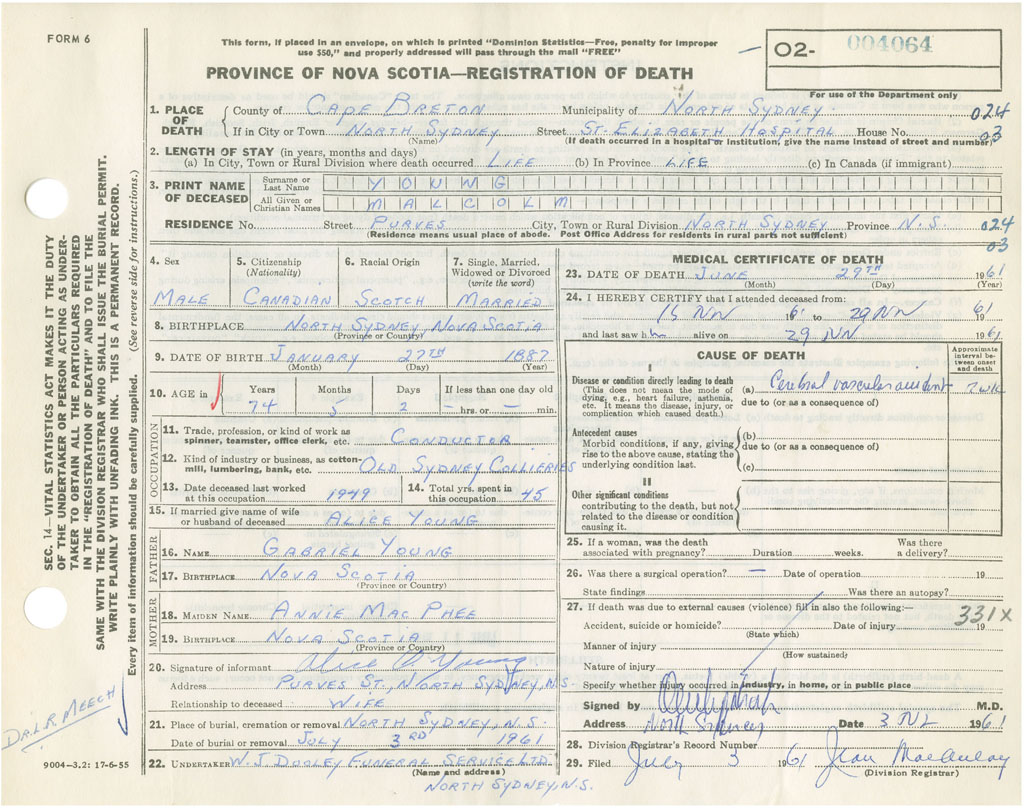 FORM 6
This form, if placed in an envelope, on which is printed "Dominion Statistics—Free, penalty for improper
use $50," and properly addressed will pass through the mail "FREE"
02- 004064
For use of the Department only
PROVINCE OF NOVA SCOTIA—REGISTRATION OF DEATH
1. PLACE OF DEATH
County of CAPE BRETON Municipality of NORTH SYDNEY. 024
If in City or Town NORTH SYDNEY Street ST. ELIZABETH HOSPITAL House No. 03
(Name) (If death occurred in a hospital or institution, give the name instead of street and number)
2. LENGTH OF STAY (in years, months and days)
(a) In City, Town or Rural Division where death occurred LIFE (b) In Province LIFE (c) In Canada (if immigrant)
3. PRINT NAME OF DECEASED
Surname or Last Name YOUNG
All Given or Christian Names MALCOLM
RESIDENCE No. Street PURVES City, Town or Rural Division NORTH SYDNEY Province N.S. 024
03
(Residence means usual place of abode. Post Office Address for residents in rural parts not sufficient)
4. Sex
MALE
5. Citizenship
(Nationality)
CANADIAN
6. Racial Origin
SCOTCH
7. Single, Married,
Widowed or Divorced
(write the word)
MARRIED
8. BIRTHPLACE NORTH SYDNEY, NOVA SCOTIA
(Province or Country)
9. DATE OF BIRTH JANUARY 27TH 1887
(Month) (Day) (Year)
10. AGE in
Years Months Days If less than one day old
74 5 2 – hrs. or – min.
OCCUPATION
11. Trade, profession, or kind of work as
spinner, teamster, office clerk, etc. CONDUCTOR
12. Kind of industry or business, as cotton-
mill, lumbering, bank, etc. OLD SYDNEY COLLIERIES
13. Date deceased last worked
at this occupation 1949
14. Total yrs. spent in
this occupation 45
15. If married give name of wife
or husband of deceased ALICE YOUNG
FATHER
16. NAME GABRIEL YOUNG
17. BIRTHPLACE NOVA SCOTIA
(Province or Country)
MOTHER
18. MAIDEN NAME ANNIE MAC PHEE
19. BIRTHPLACE NOVA SCOTIA
(Province or Country)
20. Signature of informant Alice Young
Address PURVES ST., NORTH SYDNEY, N.S.
Relationship to deceased WIFE
21. Place of burial, cremation or removal NORTH SYDNEY, N.S.
Date of burial or removal JULY 3RD 1961
22. UNDERTAKER W. J. DOOLEY FUNERAL SERVICE LTD.
(Name and address)
NORTH SYDNEY, N.S.
MEDICAL CERTIFICATE OF DEATH
23. DATE OF DEATH JUNE 29TH 1961
(Month) (Day) (Year)
24. I HEREBY CERTIFY that I attended deceased from:
15 61 to 29 1961
and last saw him alive on 29 1961
CAUSE OF DEATH
Approximate
interval be-
tween onset
and death
I
Disease or condition directly leading to death
(This does not mean the mode of
dying, e.g., heart failure, asthenia,
etc. It means the disease, injury, or
complication which caused death.)
(a) Cerebral vascular accident 2 wk
due to (or as a consequence of)
Antecedent causes
Morbid conditions, if any, giving
rise to the above cause, stating the
underlying condition last.
(b)
due to (or as a consequence of)
(c)
II
Other significant conditions
contributing to the death, but not
related to the disease or condition
causing it.
25. If a woman, was the death
associated with pregnancy? Duration weeks. Was there
a delivery?
26. Was there a surgical operation? – Date of operation 19
State findings Was there an autopsy?
27. If death was due to external causes (violence) fill in also the following:—
331X
Accident, suicide or homicide? Date of injury 19
(State which)
Manner of injury
(How sustained)
Nature of injury
Specify whether injury occurred in industry, in home, or in public place
Signed by M.D.
Address North Sydney Date 3 1961
28. Division Registrar's Record Number
29. Filed July 3 1961 Jean MacAulay
(Division Registrar)
SEC. 14—VITAL STATISTICS ACT MAKES IT THE DUTY
OF THE UNDERTAKER OR PERSON ACTING AS UNDER-
TAKER TO OBTAIN ALL THE PARTICULARS REQUIRED
IN THE "REGISTRATION OF DEATH" AND TO FILE THE
SAME WITH THE DIVISION REGISTRAR WHO SHALL ISSUE THE BURIAL PERMIT.
WRITE PLAINLY WITH UNFADING INK. THIS IS A PERMANENT RECORD.
Every item of information should be carefully supplied. (See reverse side for instructions.)
DR. L.R. MEECH
9004—3.2: 17-6-55